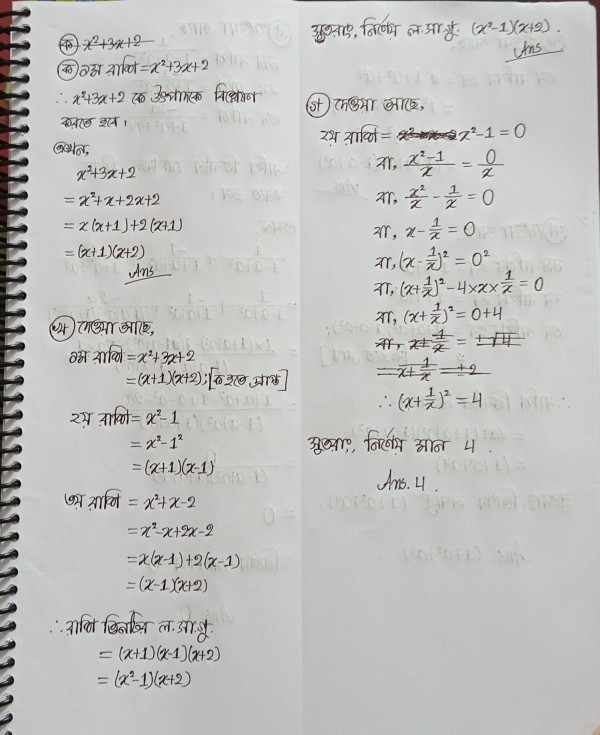 ক x²+3x+2
ক ১ম রাশি = x²+3x+2
∴ x²+3x+2 কে উৎপাদকে বিশ্লেষণ
করতে হবে।
এখন,
x²+3x+2
= x²+x+2x+2
= x(x+1)+2(x+1)
= (x+1)(x+2)
Ans
খ দেওয়া আছে,
১ম রাশি = x²+3x+2
= (x+1)(x+2); [ক হতে প্রাপ্ত]
২য় রাশি = x²-1
= x²-1²
= (x+1)(x-1)
৩য় রাশি = x²+x-2
= x²-x+2x-2
= x(x-1)+2(x-1)
= (x-1)(x+2)
∴ রাশি তিনটির ল.সা.গু.
= (x+1)(x-1)(x+2)
= (x²-1)(x+2)
সুতরাং, নির্ণেয় ল.সা.গু. (x²-1)(x+2).
Ans
গ দেওয়া আছে,
২য় রাশি = x²-1 = 0
বা, (x²-1)/x = 0/x
বা, x²/x - 1/x = 0
বা, x - 1/x = 0
বা, (x - 1/x)² = 0²
বা, (x+1/x)² - 4×x×1/x = 0
বা, (x+1/x)² = 0+4
বা, x+1/x = ±√4
x+1/x = ±2
∴ (x+1/x)² = 4
সুতরাং, নির্ণেয় মান 4.
Ans. 4.